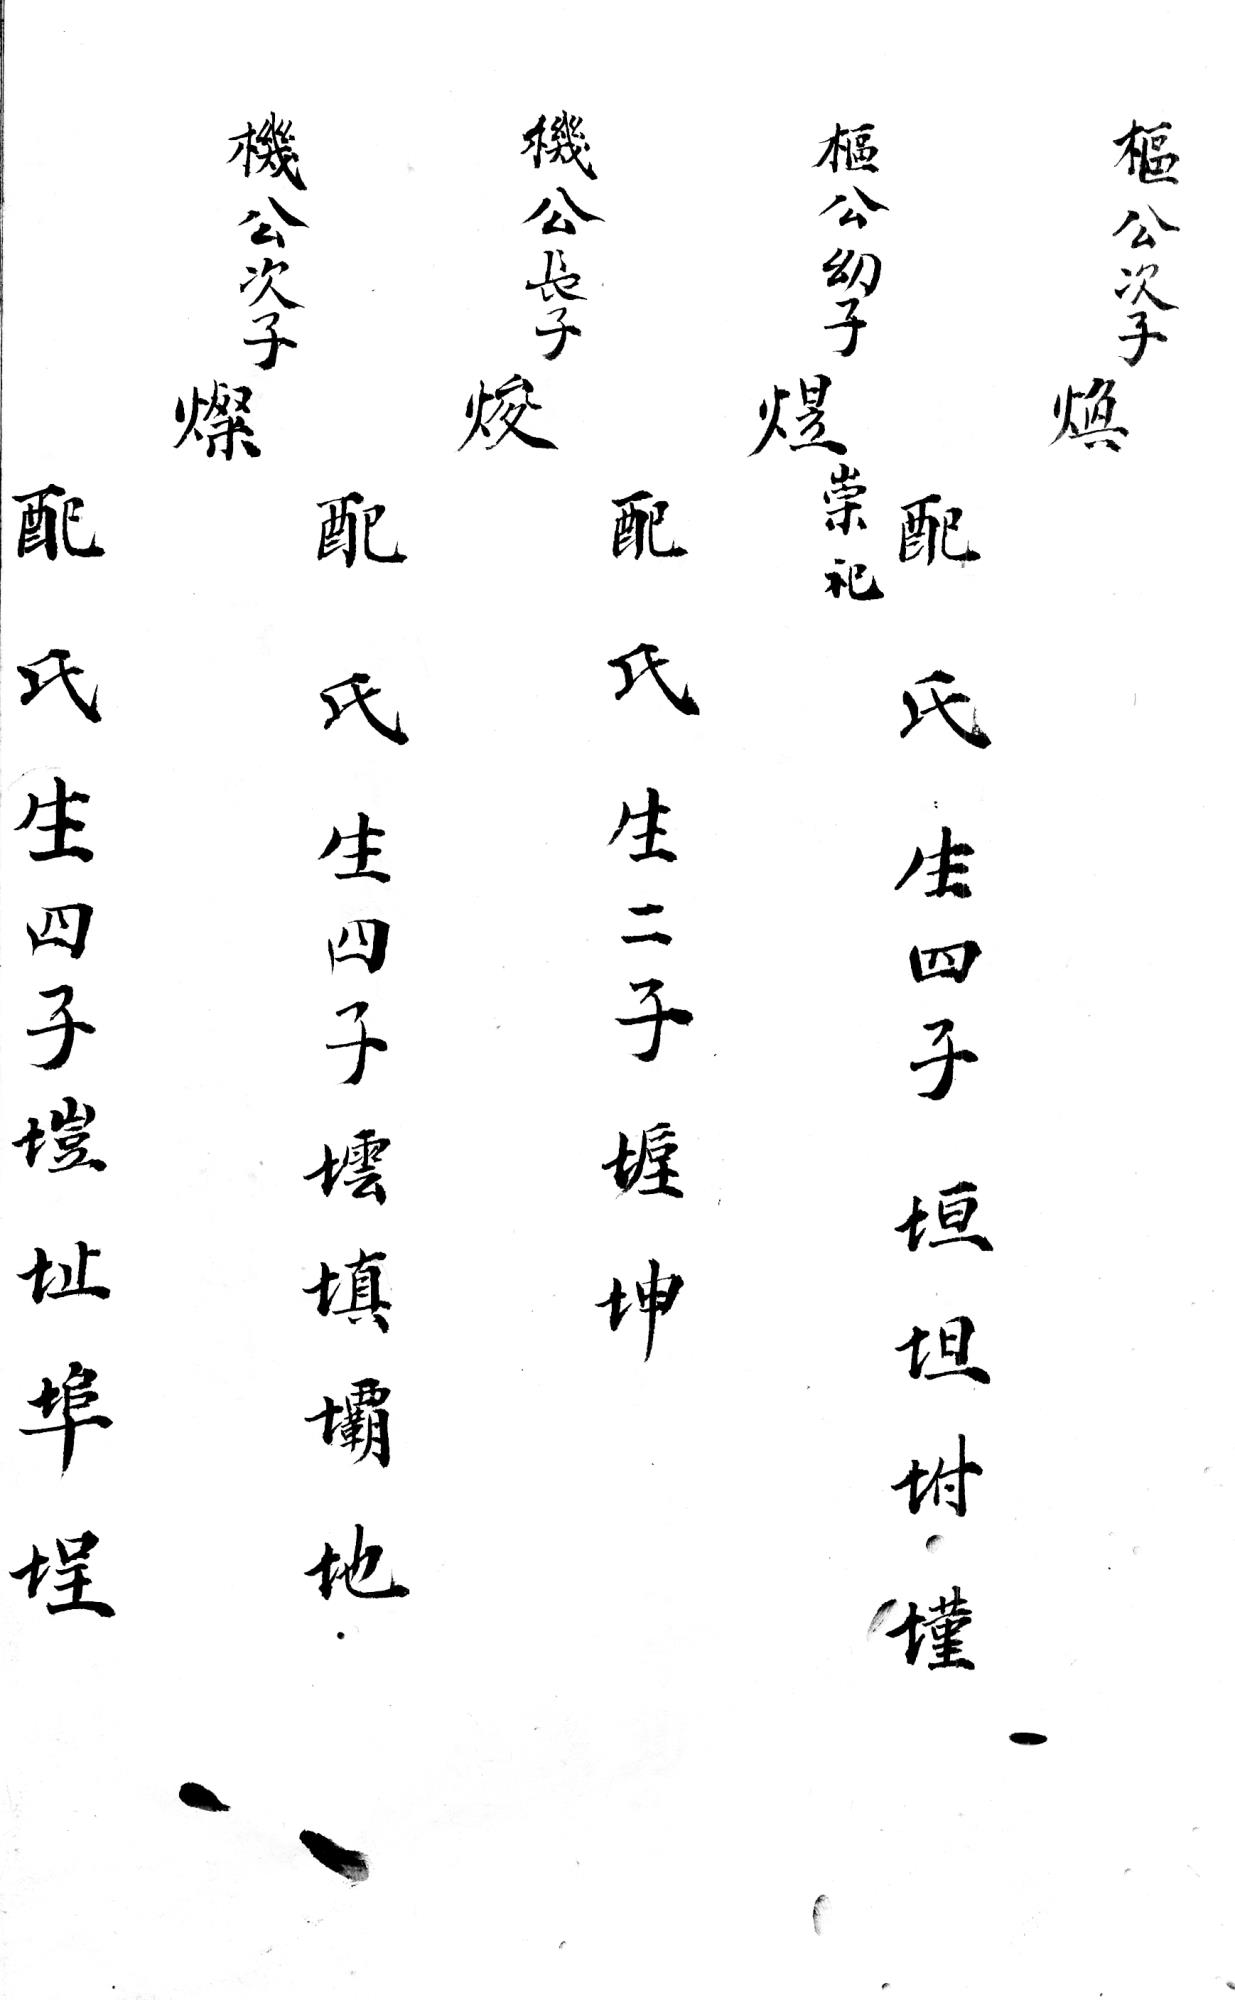 樞公次子
煥
配　氏　生四子　垣　坦　坿　墐
樞公幼子
煜
崇祀
配　氏　生二子　坤
機公長子
焌
配　氏　生四子　壜　填　壩　地
機公次子
燦
配　氏　生四子　塏　址　埠　埕